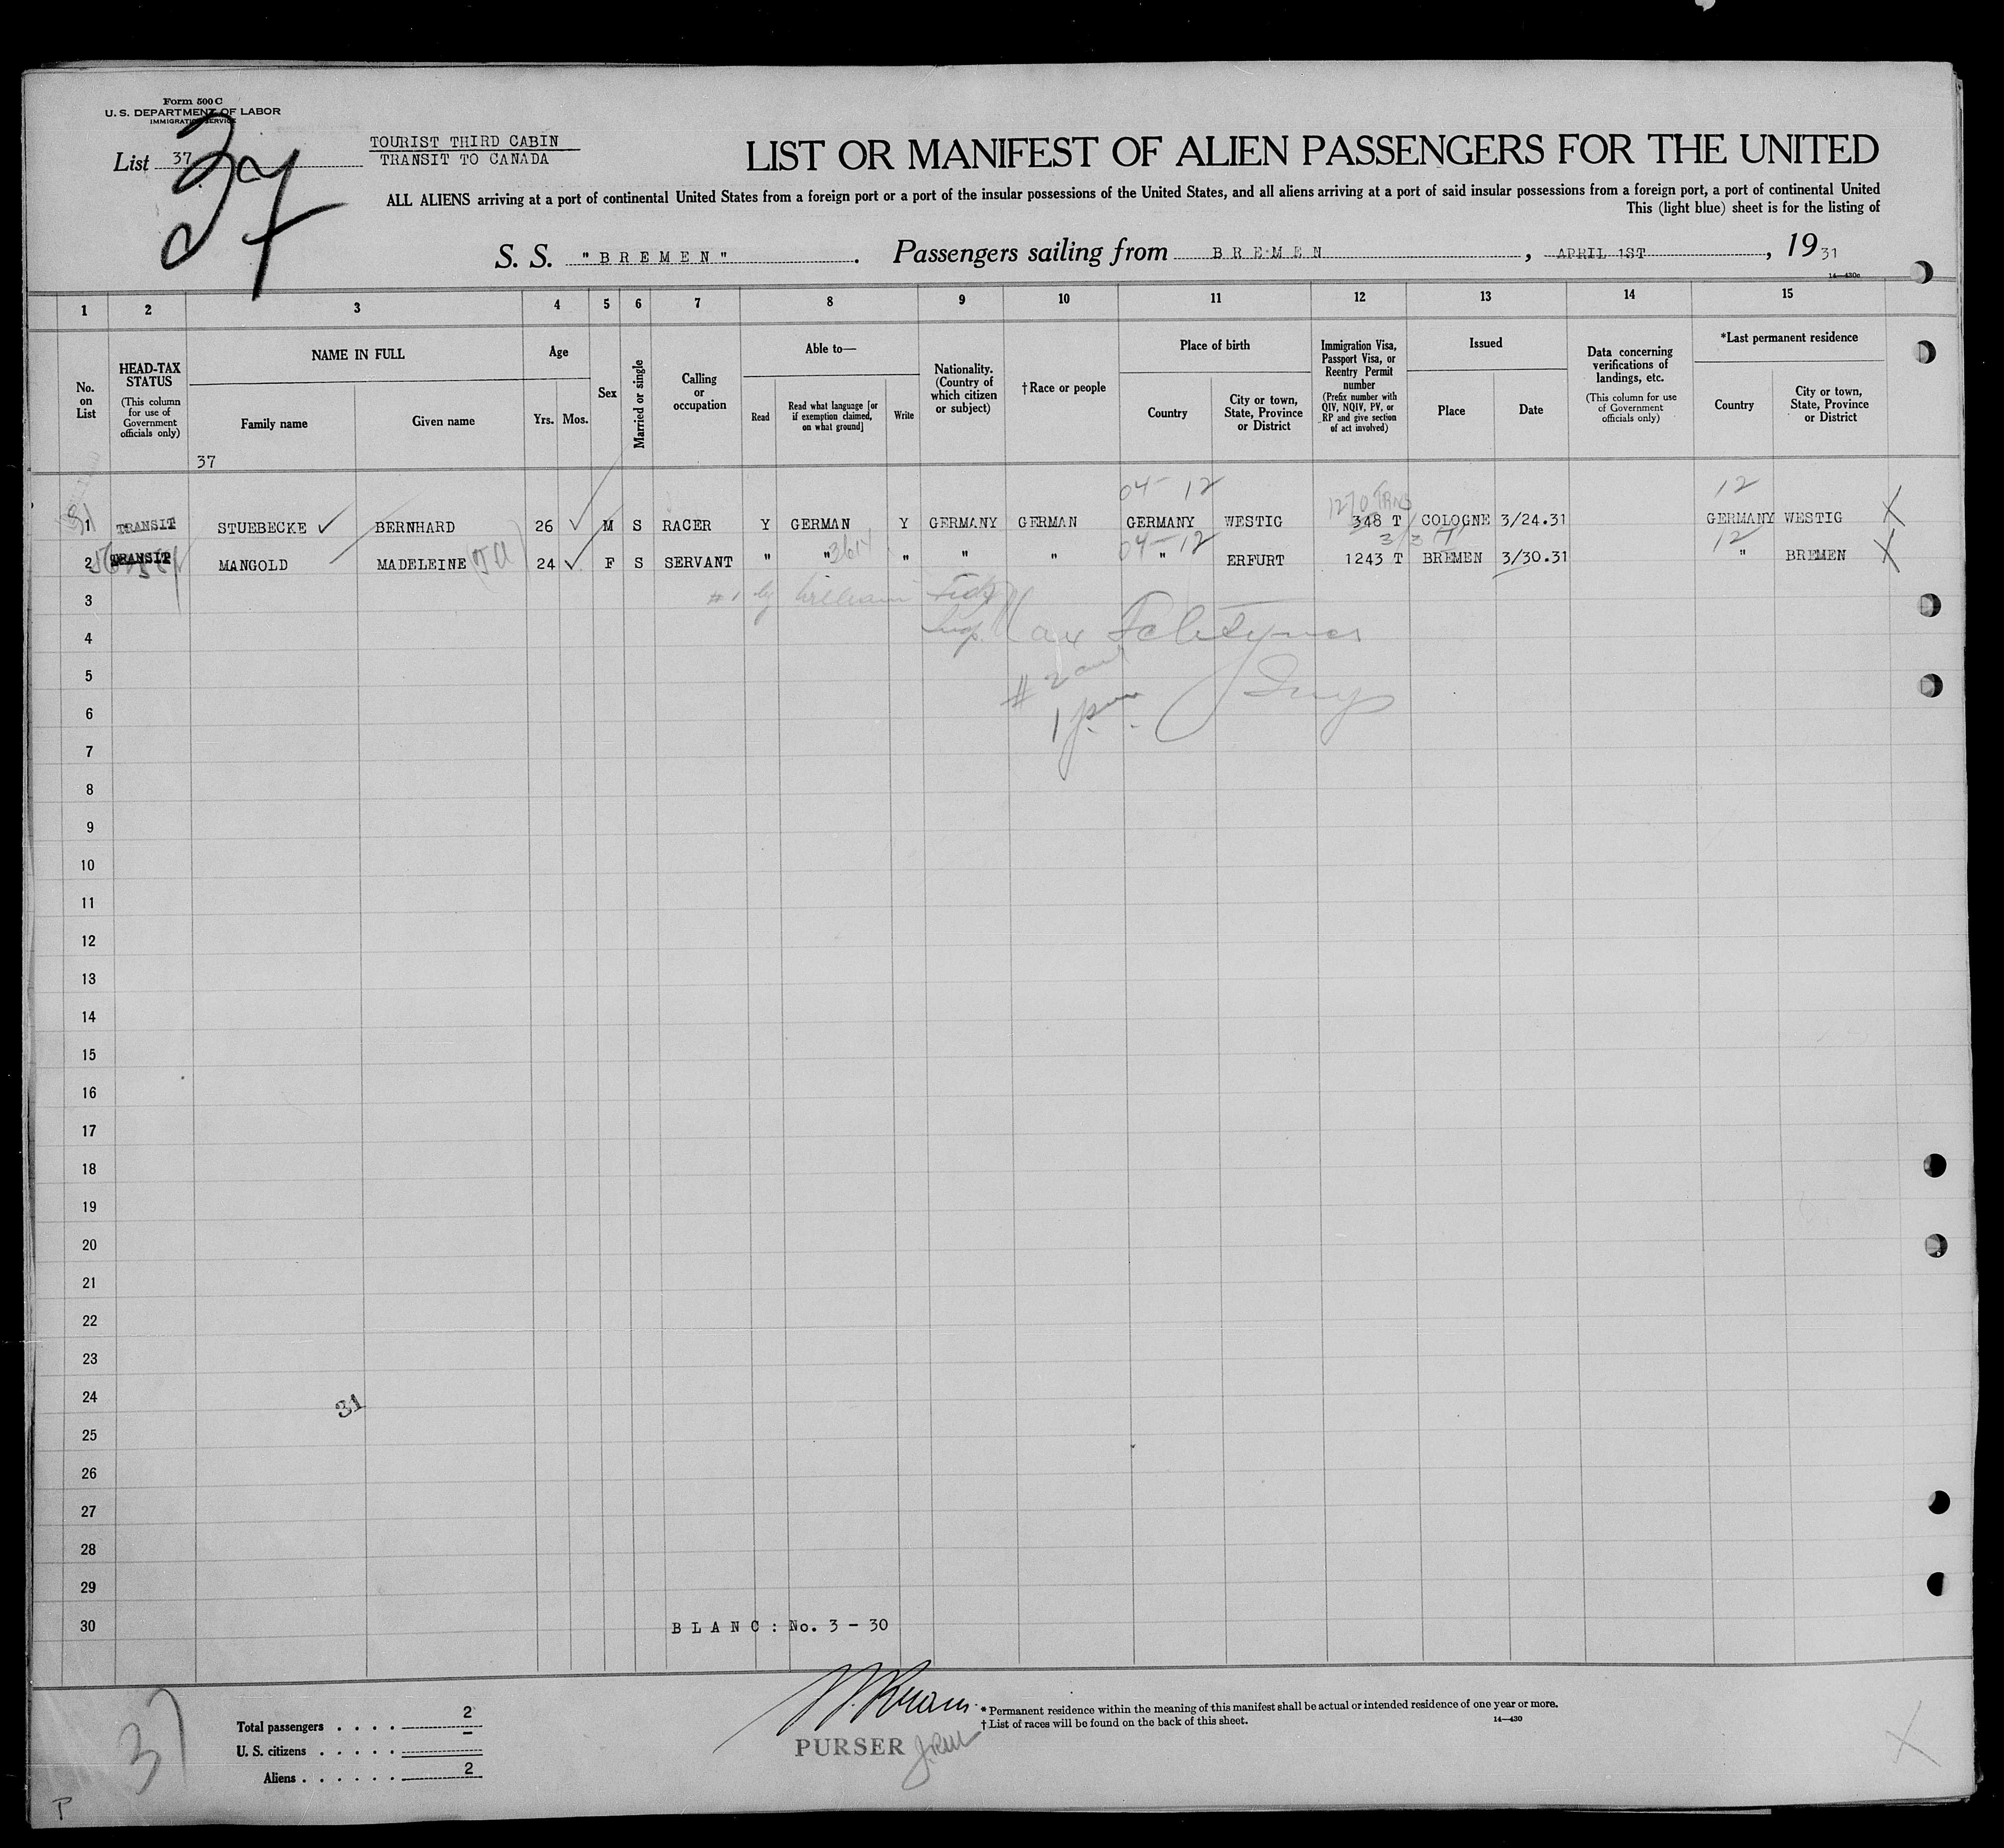 Form 500 C
U. S. DEPARTMENT OF LABOR
IMMIGRATION SERVICE
List 37
37
TOURIST THIRD CABIN
TRANSIT TO CANADA
LIST OR MANIFEST OF ALIEN PASSENGERS FOR THE UNITED
ALL ALIENS arriving at a port of continental United States from a foreign port or a port of the insular possessions of the United States, and all aliens arriving at a port of said insular possessions from a foreign port, a port of continental United
This (light blue) sheet is for the listing of
S. S. "BREMEN". Passengers sailing from BREMEN, APRIL 1ST, 1931
14—430c
1 2 3 4 5 6 7 8 9 10 11 12 13 14 15
No. on List
HEAD-TAX STATUS (This column for use of Government officials only)
NAME IN FULL
Family name
Given name
Age
Yrs. Mos.
Sex
Married or single
Calling or occupation
Able to—
Read
Read what language [or if exemption claimed, on what ground]
Write
Nationality. (Country of which citizen or subject)
†Race or people
Place of birth
Country
City or town, State, Province or District
Immigration Visa, Passport Visa, or Reentry Permit number (Prefix number with QIV, NQIV, PV, or RP and give section of act involved)
Issued
Place
Date
Data concerning verifications of landings, etc. (This column for use of Government officials only)
*Last permanent residence
Country
City or town, State, Province or District
37
04-12 12
1 TRANSIT STUEBECKE ✓ BERNHARD 26 ✓ M S RACER Y GERMAN Y GERMANY GERMAN GERMANY WESTIG 348 T COLOGNE 3/24.31 GERMANY WESTIG X
04-12 12
2 TRANSIT MANGOLD MADELEINE 24 ✓ F S SERVANT " " " " " " ERFURT 1243 T BREMEN 3/30.31 " BREMEN X
3 #1 by William
4
5 #2 and
6 1 Insp
7
8
9
10
11
12
13
14
15
16
17
18
19
20
21
22
23
24
31
25
26
27
28
29
30 BLANC: No. 3 - 30
37
Total passengers . . . . 2
U. S. citizens . . . . . —
Aliens . . . . . . 2
PURSER
* Permanent residence within the meaning of this manifest shall be actual or intended residence of one year or more.
† List of races will be found on the back of this sheet.
14—430
X
P